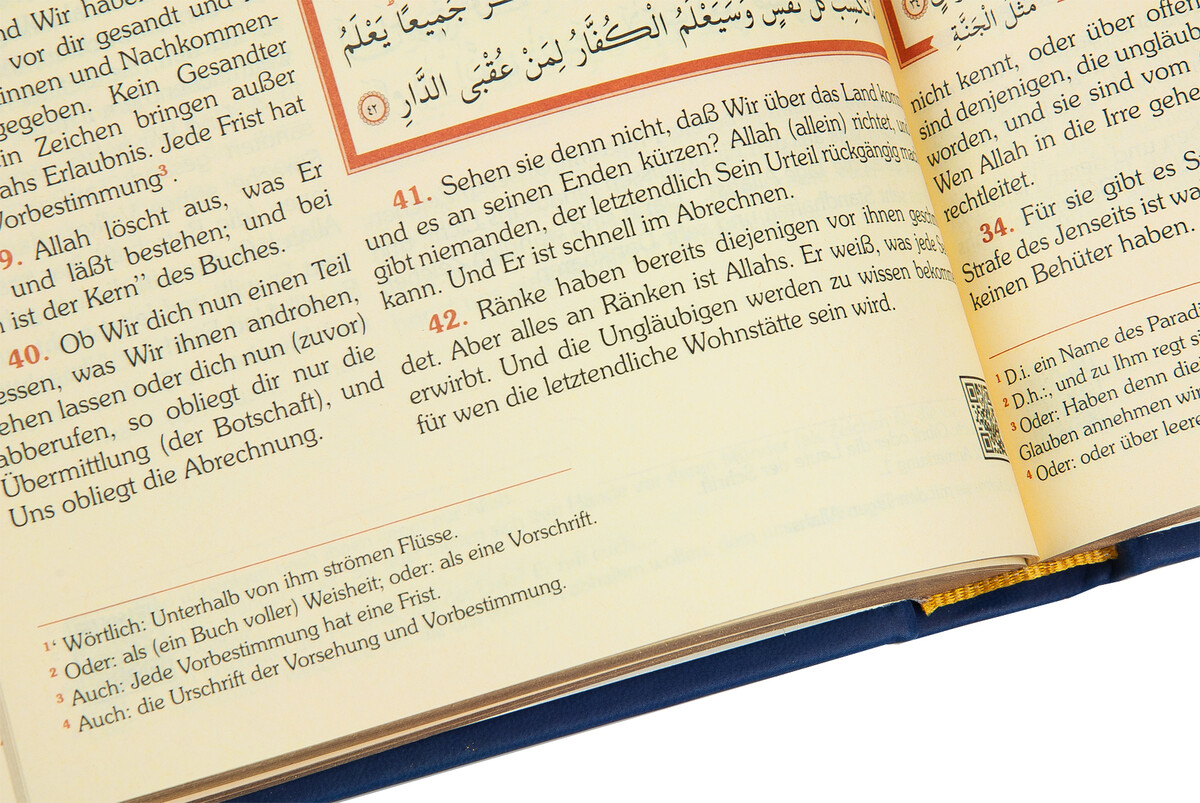 nd Wir habe
vor dir gesandt und
innen und Nachkommen-
gegeben. Kein Gesandter
in Zeichen bringen außer
ahs Erlaubnis. Jede Frist hat
Vorbestimmung³.
9. Allah löscht aus, was Er
und läßt bestehen; und bei
ist der Kern” des Buches.
40. Ob Wir dich nun einen Teil
essen, was Wir ihnen androhen,
ehen lassen oder dich nun (zuvor)
abberufen, so obliegt dir nur die
Übermittlung (der Botschaft), und
Uns obliegt die Abrechnung.
جَمِيعًا يَعْلَمُ
كُلُّ نَفْسٍ وَسَيَعْلَمُ الْكُفَّارُ لِمَنْ عُقْبَى الدَّارِ ٤٢
41. Sehen sie denn nicht, daß Wir über das Land kom
und es an seinen Enden kürzen? Allah (allein) richtet, un
gibt niemanden, der letztendlich Sein Urteil rückgängig mac
kann. Und Er ist schnell im Abrechnen.
42. Ränke haben bereits diejenigen vor ihnen geschm
det. Aber alles an Ränken ist Allahs. Er weiß, was jede Se
erwirbt. Und die Ungläubigen werden zu wissen bekomm
für wen die letztendliche Wohnstätte sein wird.
1‘ Wörtlich: Unterhalb von ihm strömen Flüsse.
2 Oder: als (ein Buch voller) Weisheit; oder: als eine Vorschrift.
3 Auch: Jede Vorbestimmung hat eine Frist.
4 Auch: die Urschrift der Vorsehung und Vorbestimmung.
مَثَلُ الْجَنَّةِ
nicht kennt, oder über offen
sind denjenigen, die ungläub
worden, und sie sind vom
Wen Allah in die Irre gehe
rechtleitet.
34. Für sie gibt es S
Strafe des Jenseits ist wa
keinen Behüter haben.
1 D.i. ein Name des Paradi
2 D.h.:, und zu Ihm regt si
3 Oder: Haben denn die
Glauben annehmen wir
4 Oder: oder über leere